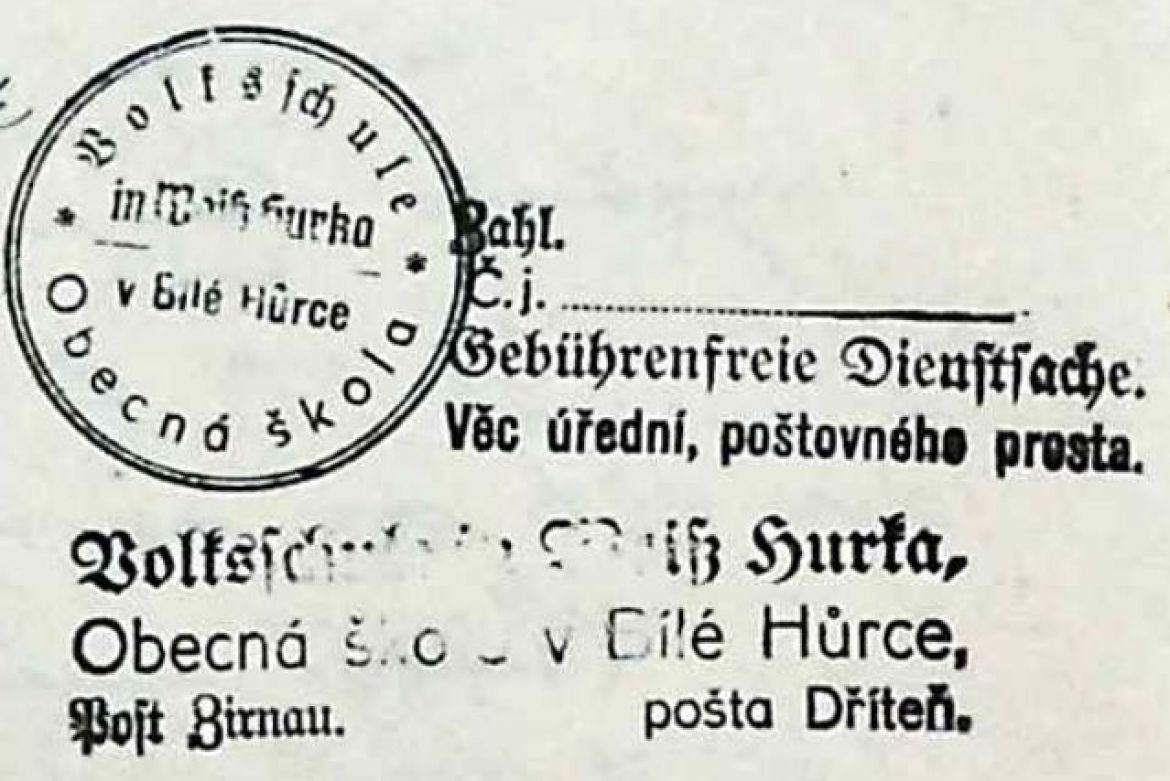 Volksschule
in Weiß Hurka
v Bílé Hůrce
Obecná škola
Zahl.
Č.j.
Gebührenfreie Dienstsache.
Věc úřední, poštovného prosta.
Volksschule in Weiß Hurka,
Obecná škola v Bílé Hůrce,
Post Zirnau. pošta Dříteň.